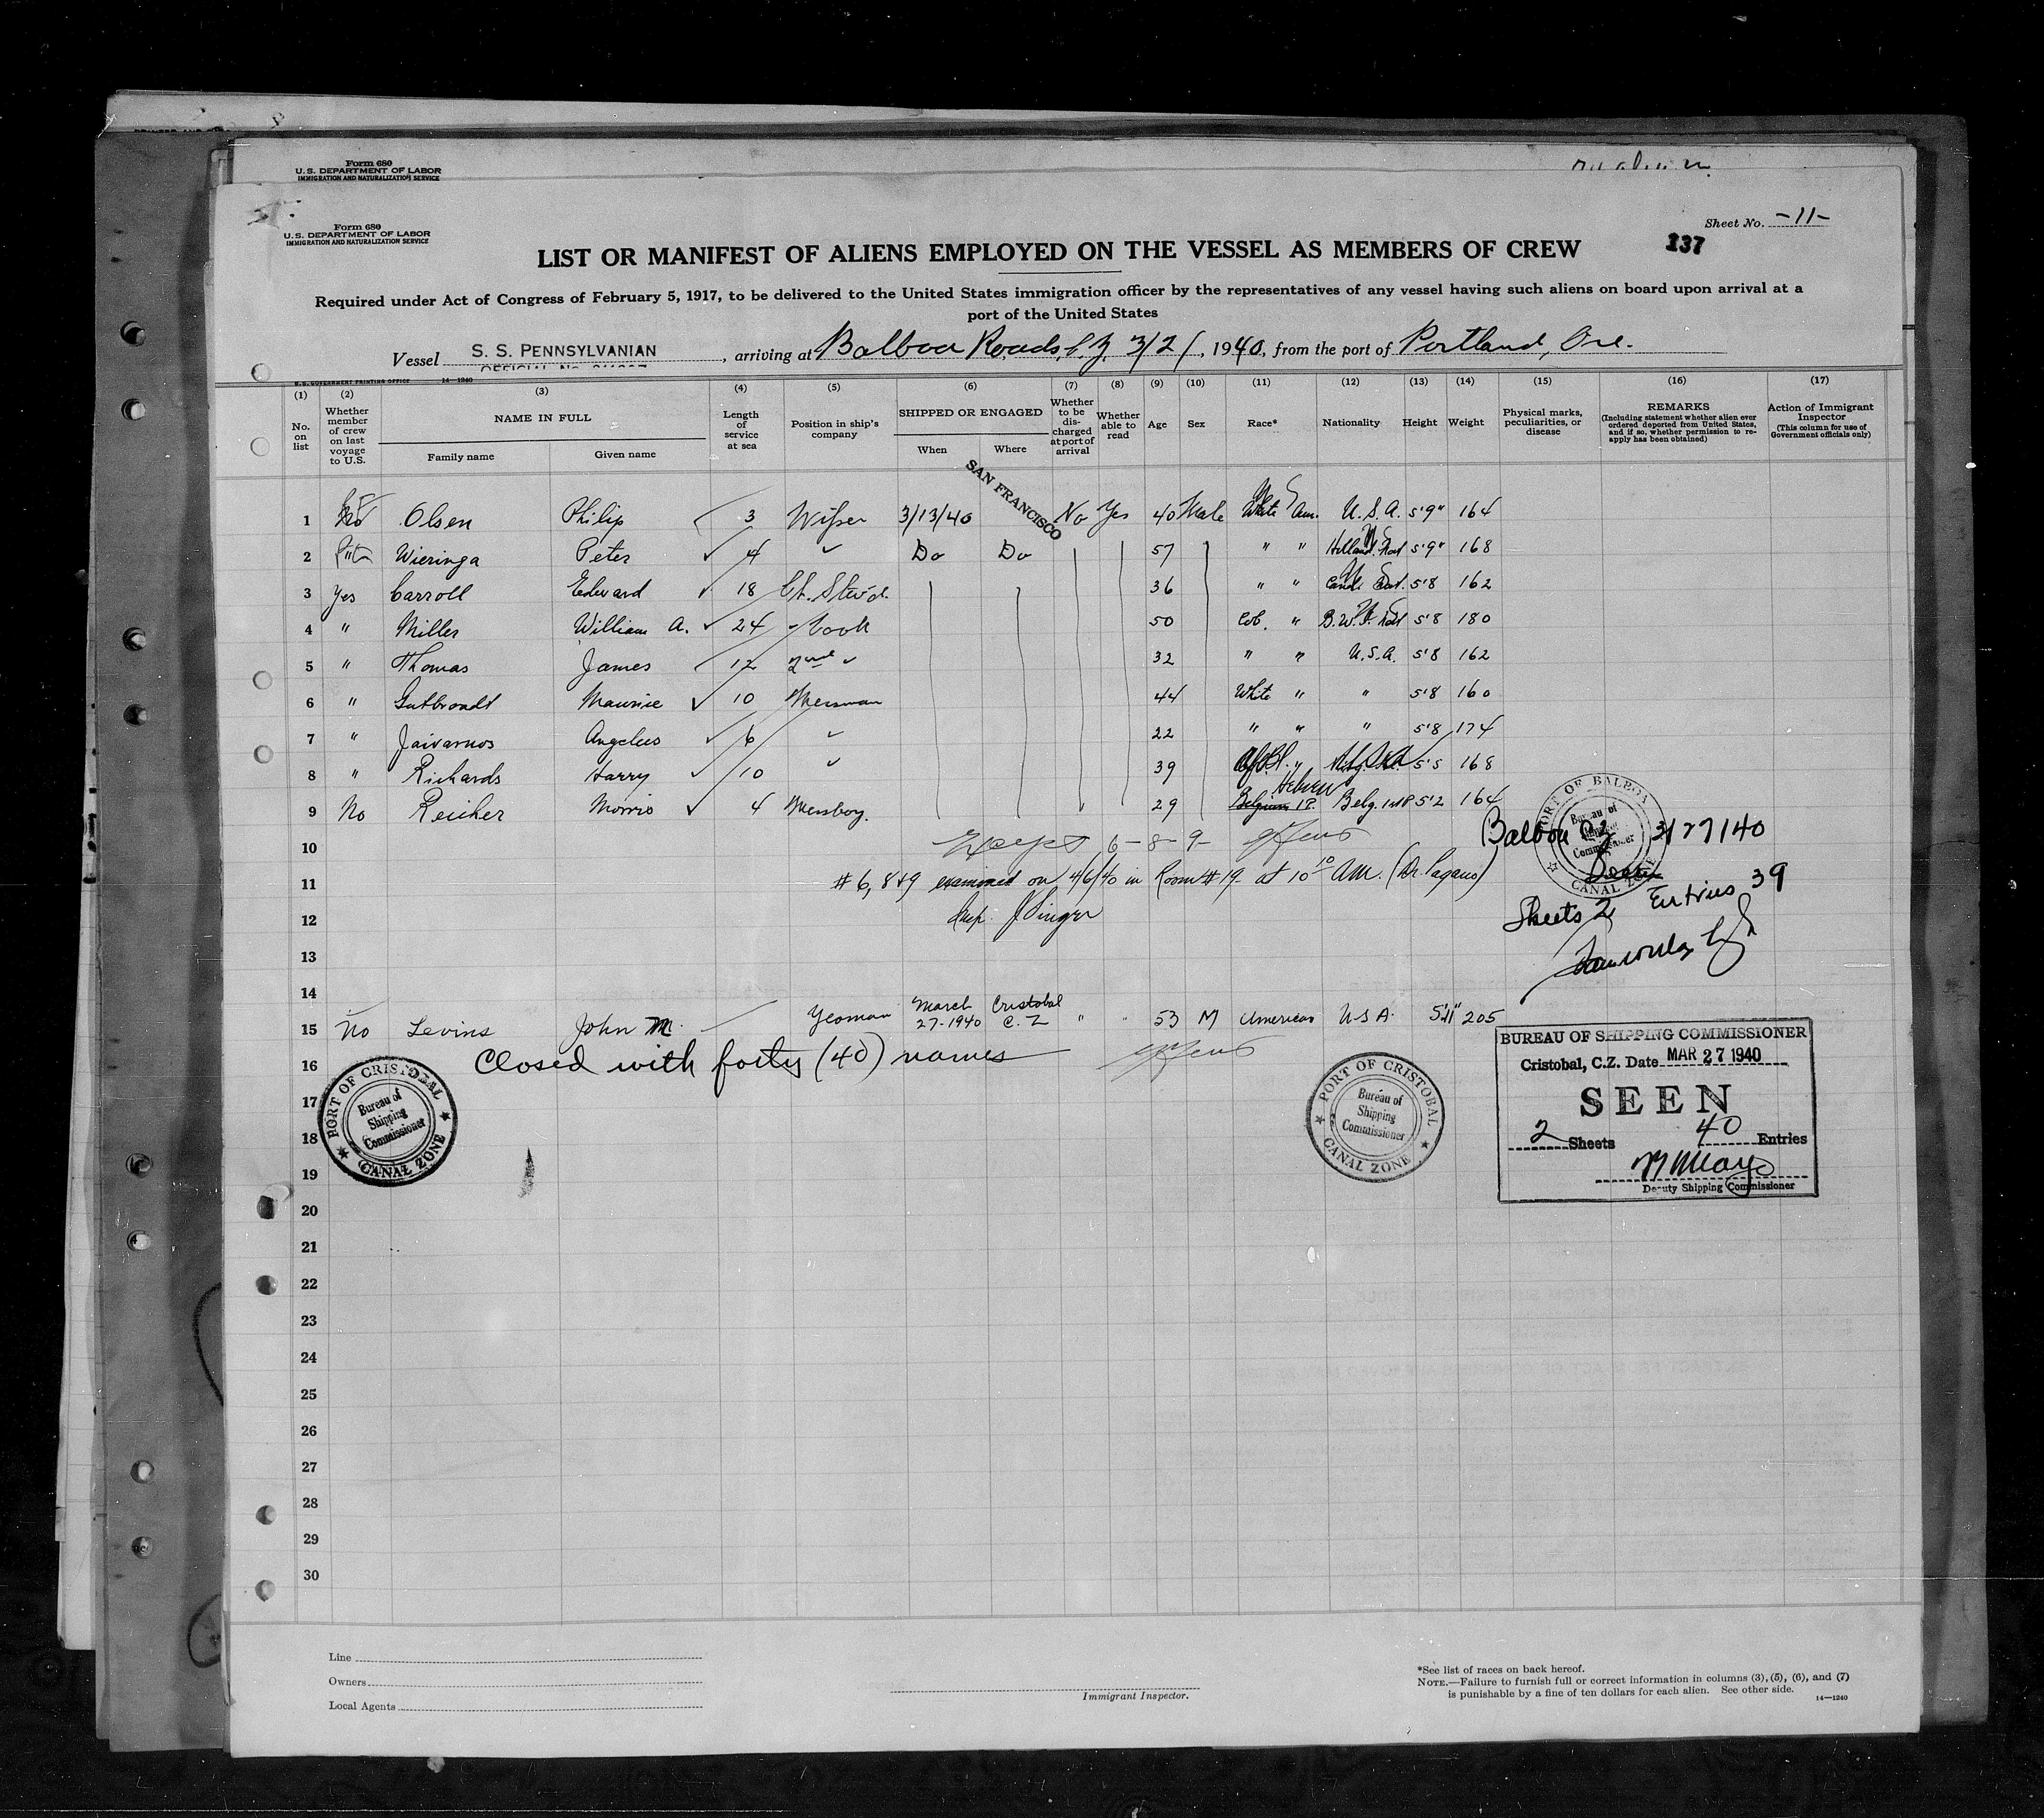 Form 680
U. S. DEPARTMENT OF LABOR
IMMIGRATION AND NATURALIZATION SERVICE
Form 680
U. S. DEPARTMENT OF LABOR
IMMIGRATION AND NATURALIZATION SERVICE
Sheet No. -11-
137
LIST OR MANIFEST OF ALIENS EMPLOYED ON THE VESSEL AS MEMBERS OF CREW
Required under Act of Congress of February 5, 1917, to be delivered to the United States immigration officer by the representatives of any vessel having such aliens on board upon arrival at a
port of the United States
Vessel S. S. PENNSYLVANIAN, arriving at Balboa Roads, C.Z. 3/21, 1940, from the port of Portland, Ore.
U. S. GOVERNMENT PRINTING OFFICE 14—1240
(1) (2) (3) (4) (5) (6) (7) (8) (9) (10) (11) (12) (13) (14) (15) (16) (17)
No. on list
Whether member of crew on last voyage to U.S.
NAME IN FULL
Family name
Given name
Length of service at sea
Position in ship's company
SHIPPED OR ENGAGED
When
Where
Whether to be discharged at port of arrival
Whether able to read
Age
Sex
Race*
Nationality
Height
Weight
Physical marks, peculiarities, or disease
REMARKS
(Including statement whether alien ever ordered deported from United States, and if so, whether permission to reapply has been obtained)
Action of Immigrant Inspector
(This column for use of Government officials only)
SAN FRANCISCO
1 No Olsen Philip 3 Wiper 3/13/40 No Yes 40 Male White Am. U.S.A. 5'9" 164
2 " Wieringa Peter ✓ 4 ✓ Do Do 57 " " Holland 5'9" 168
3 Yes Carroll Edward ✓ 18 Ch. Stew'd. 36 " " 5'8 162
4 " Miller William A. ✓ 24 - Cook 50 Col. " B.W.I. 5'8 180
5 " Thomas James 12 2nd ✓ 32 " " U.S.A. 5'8 162
6 " Gutbrondt Maurice ✓ 10 Messman 44 White " " 5'8 160
7 " Jaivarnos Angelus ✓ 6 ✓ 22 " " " 5'8 174
8 " Richards Harry ✓ 10 ✓ 39 Af.Bl. " 5'5 168
9 No Reicher Morris ✓ 4 Messboy. 29 Belgium Hebrew Belg. 5'2 164
10 Except 6-8-9-
11 #6, 8 & 9 examined on 4/6/40 in Room #19 at 10 10 AM. (Dr. Pagano)
12 Insp. J Singer
13
14
15 No Levins John M. Yeoman March 27-1940 Cristobal C.Z " " 53 M American U S A. 5'11" 205
16 Closed with forty (40) names
17
18
19
20
21
22
23
24
25
26
27
28
29
30
PORT OF BALBOA
Bureau of Shipping Commissioner
CANAL ZONE
Balboa CZ 3/27/40
Sheets 2 Entries 39
PORT OF CRISTOBAL
Bureau of
Shipping
Commissioner
CANAL ZONE
PORT OF CRISTOBAL
Bureau of
Shipping
Commissioner
CANAL ZONE
BUREAU OF SHIPPING COMMISSIONER
Cristobal, C.Z. Date MAR 27 1940
SEEN
2 Sheets 40 Entries
Deputy Shipping Commissioner
Line
Owners
Local Agents
Immigrant Inspector.
*See list of races on back hereof.
NOTE.—Failure to furnish full or correct information in columns (3), (5), (6), and (7)
is punishable by a fine of ten dollars for each alien. See other side.
14—1240